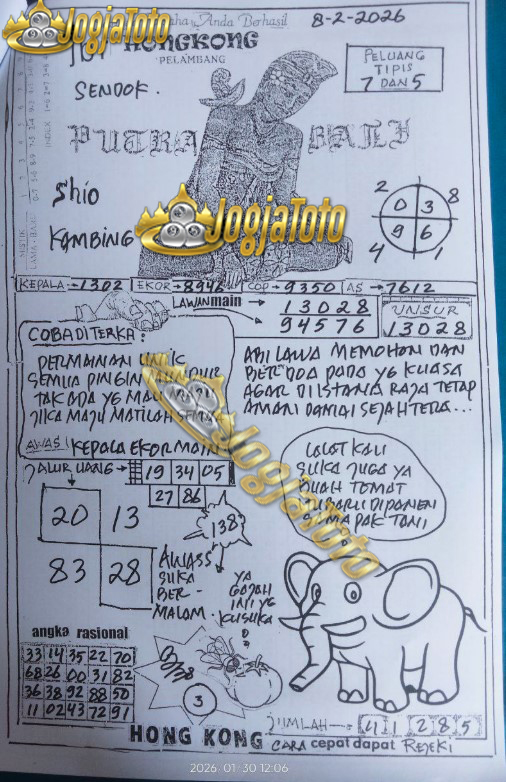 JogjaToto
Anda Berhasil
8-2-2026
HONGKONG
PELAMBANG
PELUANG
TIPIS
7 DAN 5
SENDOK.
PUTRA BALI
Shio
KAMBING
JogjaToto
2
8
0 3
9 6
4
1
KEPALA→1302 EKOR→8946 COP→9350 AS→7612
LAWAN main →
13028
94576
UNSUR
13028
COBA DI TERKA:
PERMAINAN UNIK
SEMUA PINGIN MUNDUR
TAK ADA YG MAU MAJU
JIKA MAJU MATILAH SEMUA
AWAS! KEPALA EKOR MAIN
ABI LAWA MEMOHON DAN
BER DOA PADA YG KUASA
AGAR DI ISTANA RAJA TETAP
AMAN DAMAI SEJAHTERA...
JALUR UANG→ 19 34 05
27 86
20 13
83 28
138
JogjaToto
LALAT KALI
SUKA JUGA YA
BUAH TOMAT
DI PANEN
PAK TANI
AWASS
SUKA
BER-
MALAM.
YA
GAJAH
INI YG
KUSUKA
angka rasional
33 14 35 22 70
68 26 00 31 82
36 38 92 88 50
11 02 43 72 91
B/38
3
JUMLAH→ 4 1 2 8 5
HONG KONG CARA cepat dapat REJEKI
2026 01 30 12:06